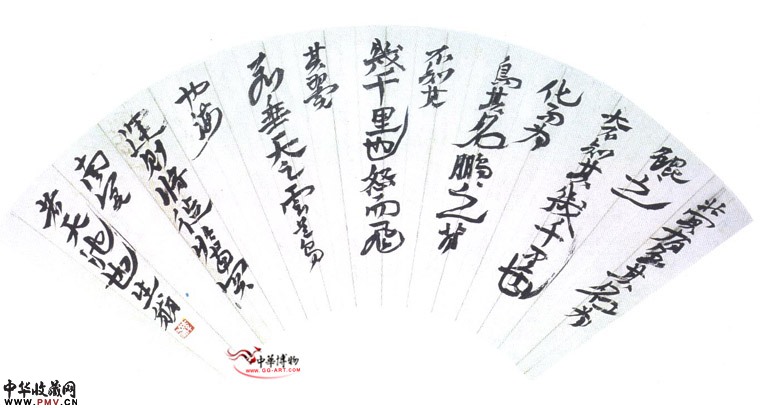 北冥有魚其名为
鯤之
大不知其幾千里也
化而为
鳥其名鵬〻之背
不知其
幾千里也怒而飛
其翼
若垂天之雲是鳥
也海
運則將徙於南冥
南冥
者天池也 生翁
中華博物
WWW.GG-ART.COM
中华收藏网
WWW.PMV.CN